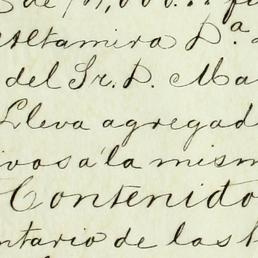 de
Altamira Dª
del Sr. D. Ma
Lleva agregad
ivos á la mism
Contenido
ntario de las